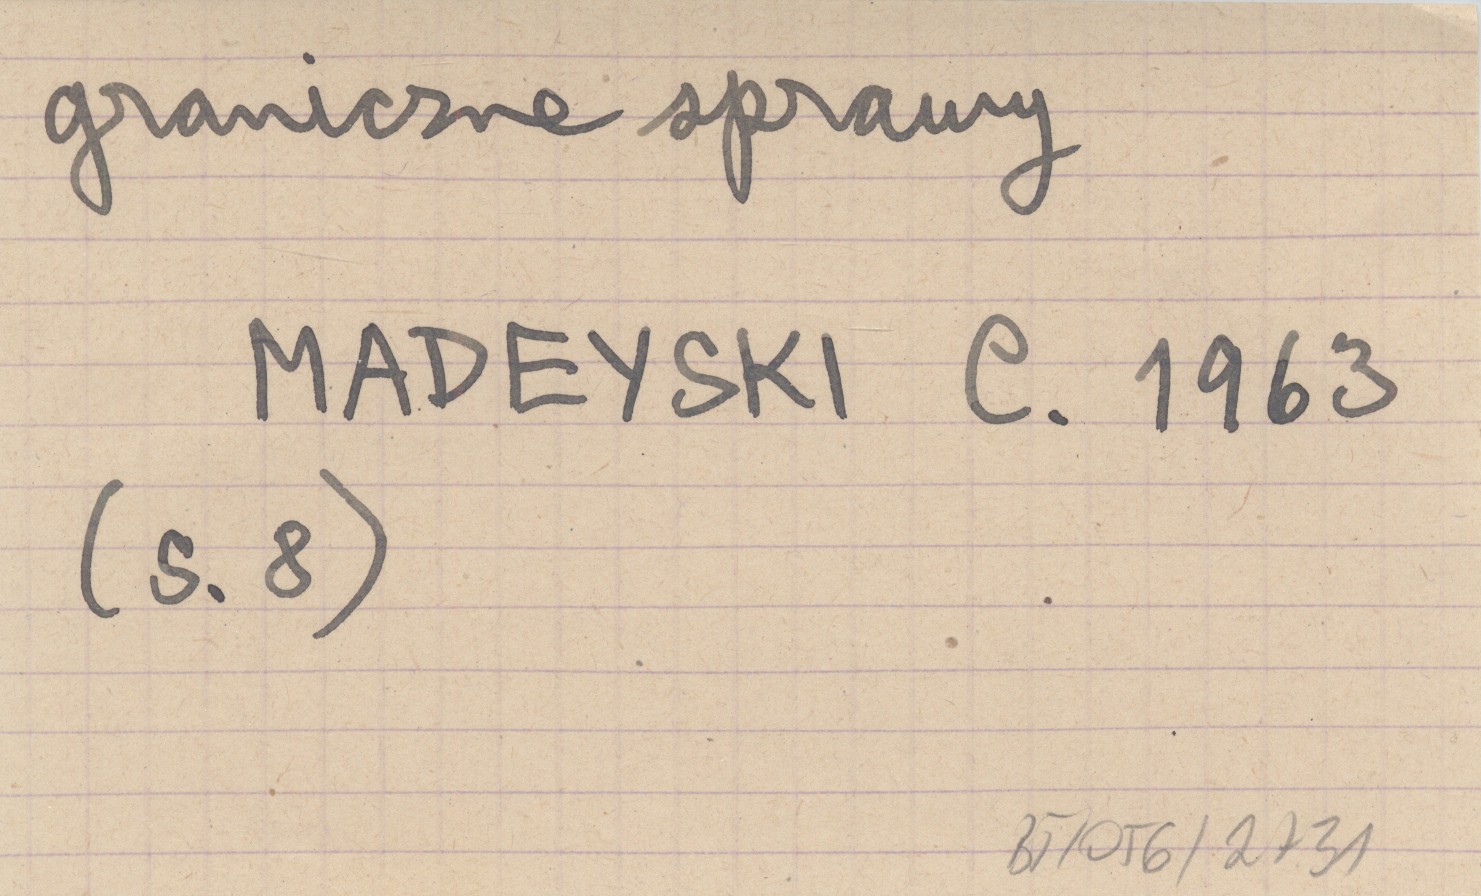 graniczne sprawy
MADEYSKI C. 1963
(s. 8)
BT/OT6/2731